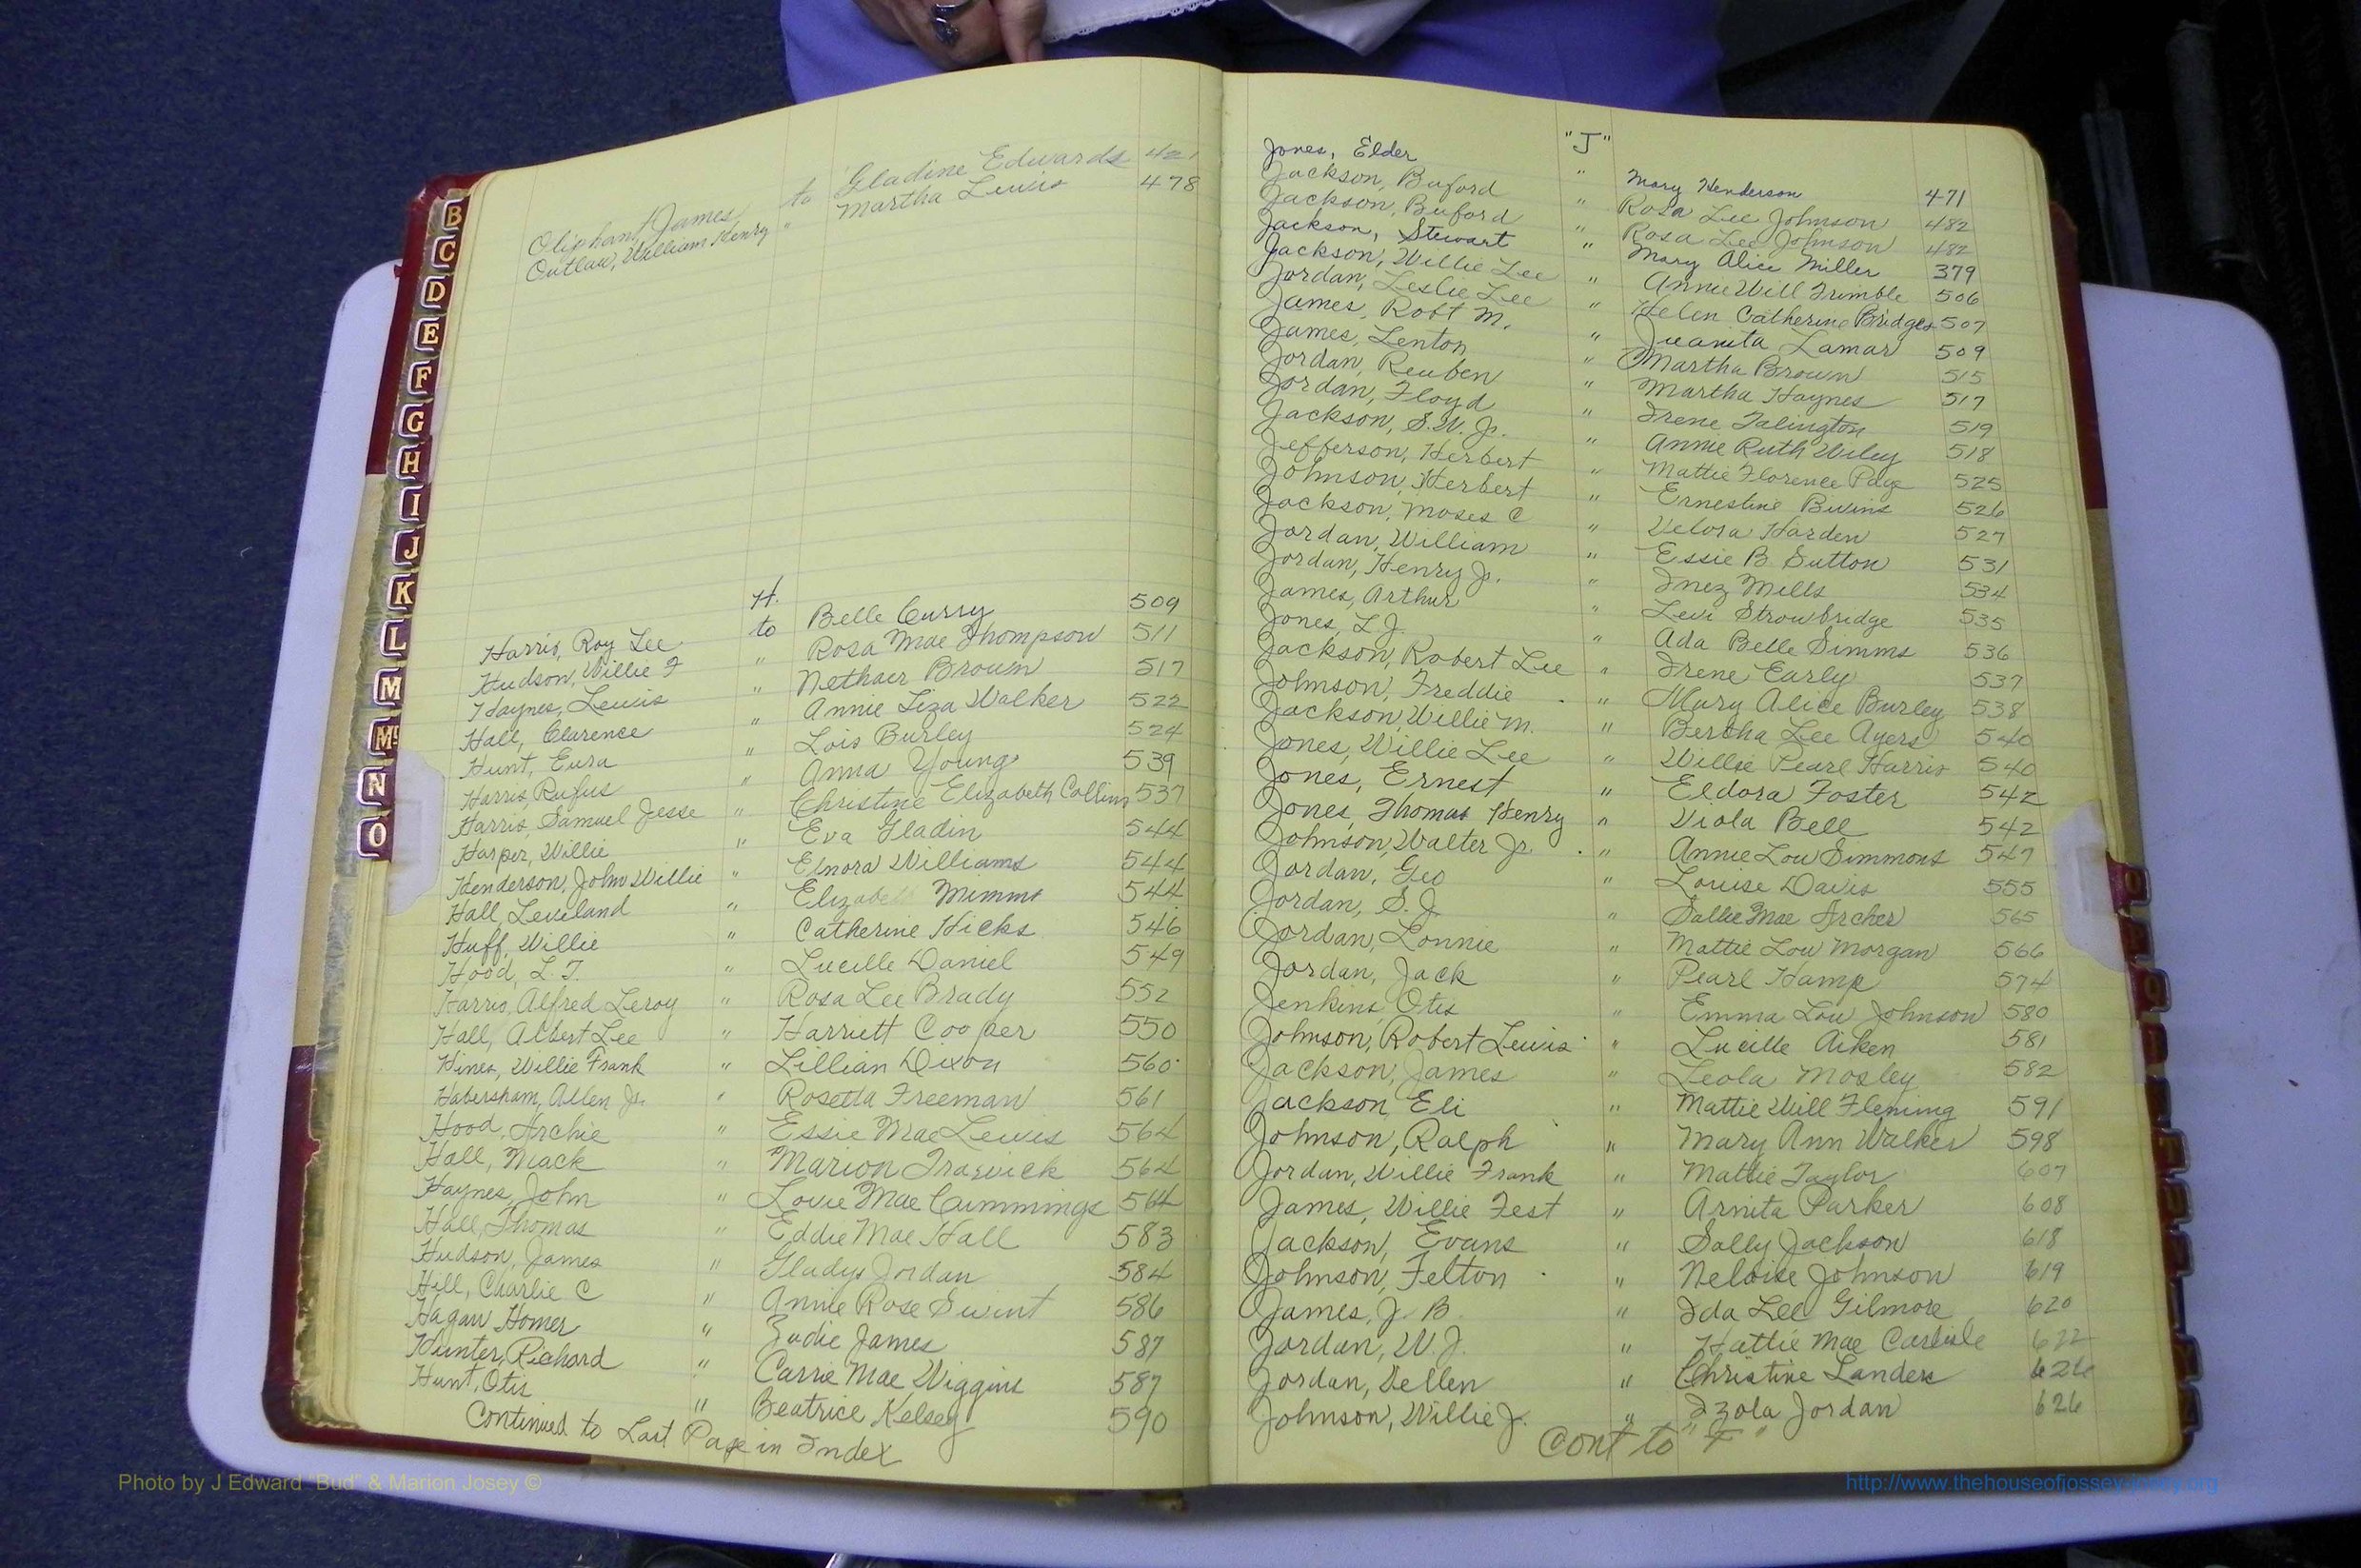 Oliphant, James to Gladine Edwards 421
Outlaw, William Henry " Martha Lewis 478
H.
Harris, Roy Lee to Belle Curry 509
Hudson, Willie F " Rosa Mae Thompson 511
Haynes, Lewis " Nethaer Brown 517
Hall, Clarence " Annie Liza Walker 522
Hunt, Eura " Lois Burley 524
Harris, Rufus " Anna Young 539
Harris, Samuel Jesse " Christine Elizabeth Collins 537
Harper, Willie " Eva Gladin 544
Henderson, John Willie " Elnora Williams 544
Hall, Leveland " Elizabeth Mimms 544
Huff, Willie " Catherine Hicks 546
Hood, L. T. " Lucille Daniel 549
Harris, Alfred Leroy " Rosa Lee Brady 552
Hall, Albert Lee " Harriett Cooper 550
Hines, Willie Frank " Lillian Dixon 560
Habersham, Allen Jr. " Rosetta Freeman 561
Hood, Archie " Essie Mae Lewis 564
Hall, Mack " Marion Trawick 564
Haynes, John " Lovie Mae Cummings 564
Hall, Thomas " Eddie Mae Hall 583
Hudson, James " Gladys Jordan 584
Hill, Charlie C " Annie Rose Swint 586
Hagan, Homer " Zudie James 587
Hunter, Richard " Carrie Mae Wiggins 587
Hunt, Otis " Beatrice Kelsey 590
Continued to Last Page in Index
"J"
Jones, Elder " Mary Henderson 471
Jackson, Buford " Rosa Lee Johnson 482
Jackson, Buford " Rosa Lee Johnson 482
Jackson, Stewart " Mary Alice Miller 379
Jackson, Willie Lee " Annie Will Trimble 506
Jordan, Leslie Lee " Helen Catherine Bridges 507
James, Robt M. " Juanita Lamar 509
James, Lenton " Martha Brown 515
Jordan, Reuben " Martha Haynes 517
Jordan, Floyd " Irene Talington 519
Jackson, S.W. Jr. " Annie Ruth Wiley 518
Jefferson, Herbert " Mattie Florence Page 525
Johnson, Herbert " Ernestine Bivins 526
Jackson, Moses C " Velora Harden 527
Jordan, William " Essie B Sutton 531
Jordan, Henry Jr. " Inez Mills 534
James, Arthur " Levi Strowbridge 535
Jones, L J. " Ada Belle Simms 536
Jackson, Robert Lee " Irene Early 537
Johnson, Freddie " Mary Alice Burley 538
Jackson, Willie M. " Bertha Lee Ayers 540
Jones, Willie Lee " Willie Pearl Harris 540
Jones, Ernest " Eldora Foster 542
Jones, Thomas Henry " Viola Bell 542
Johnson, Walter Jr. " Annie Lou Simmons 547
Jordan, Geo " Louise Davis 555
Jordan, S. J. " Sallie Mae Archer 565
Jordan, Lonnie " Mattie Lou Morgan 566
Jordan, Jack " Pearl Hamp 574
Jenkins, Otis " Emma Lou Johnson 580
Johnson, Robert Lewis " Lucille Aiken 581
Jackson, James " Leola Mosley 582
Jackson, Eli " Mattie Will Fleming 591
Johnson, Ralph " Mary Ann Walker 598
Jordan, Willie Frank " Mattie Taylor 607
James, Willie Fest " Arnita Parker 608
Jackson, Evans " Sally Jackson 618
Johnson, Felton " Neloise Johnson 619
James, J. B. " Ida Lee Gilmore 620
Jordan, W. J. " Hattie Mae Carlisle 622
Jordan, Dellen " Christine Landers 626
Johnson, Willie J. " Izola Jordan 626
Cont to "F"
B
C
D
E
F
G
H
I
J
K
L
M
Mc
N
O
Photo by J Edward "Bud" & Marion Josey ©
http://www.thehouseofjossey-josey.org